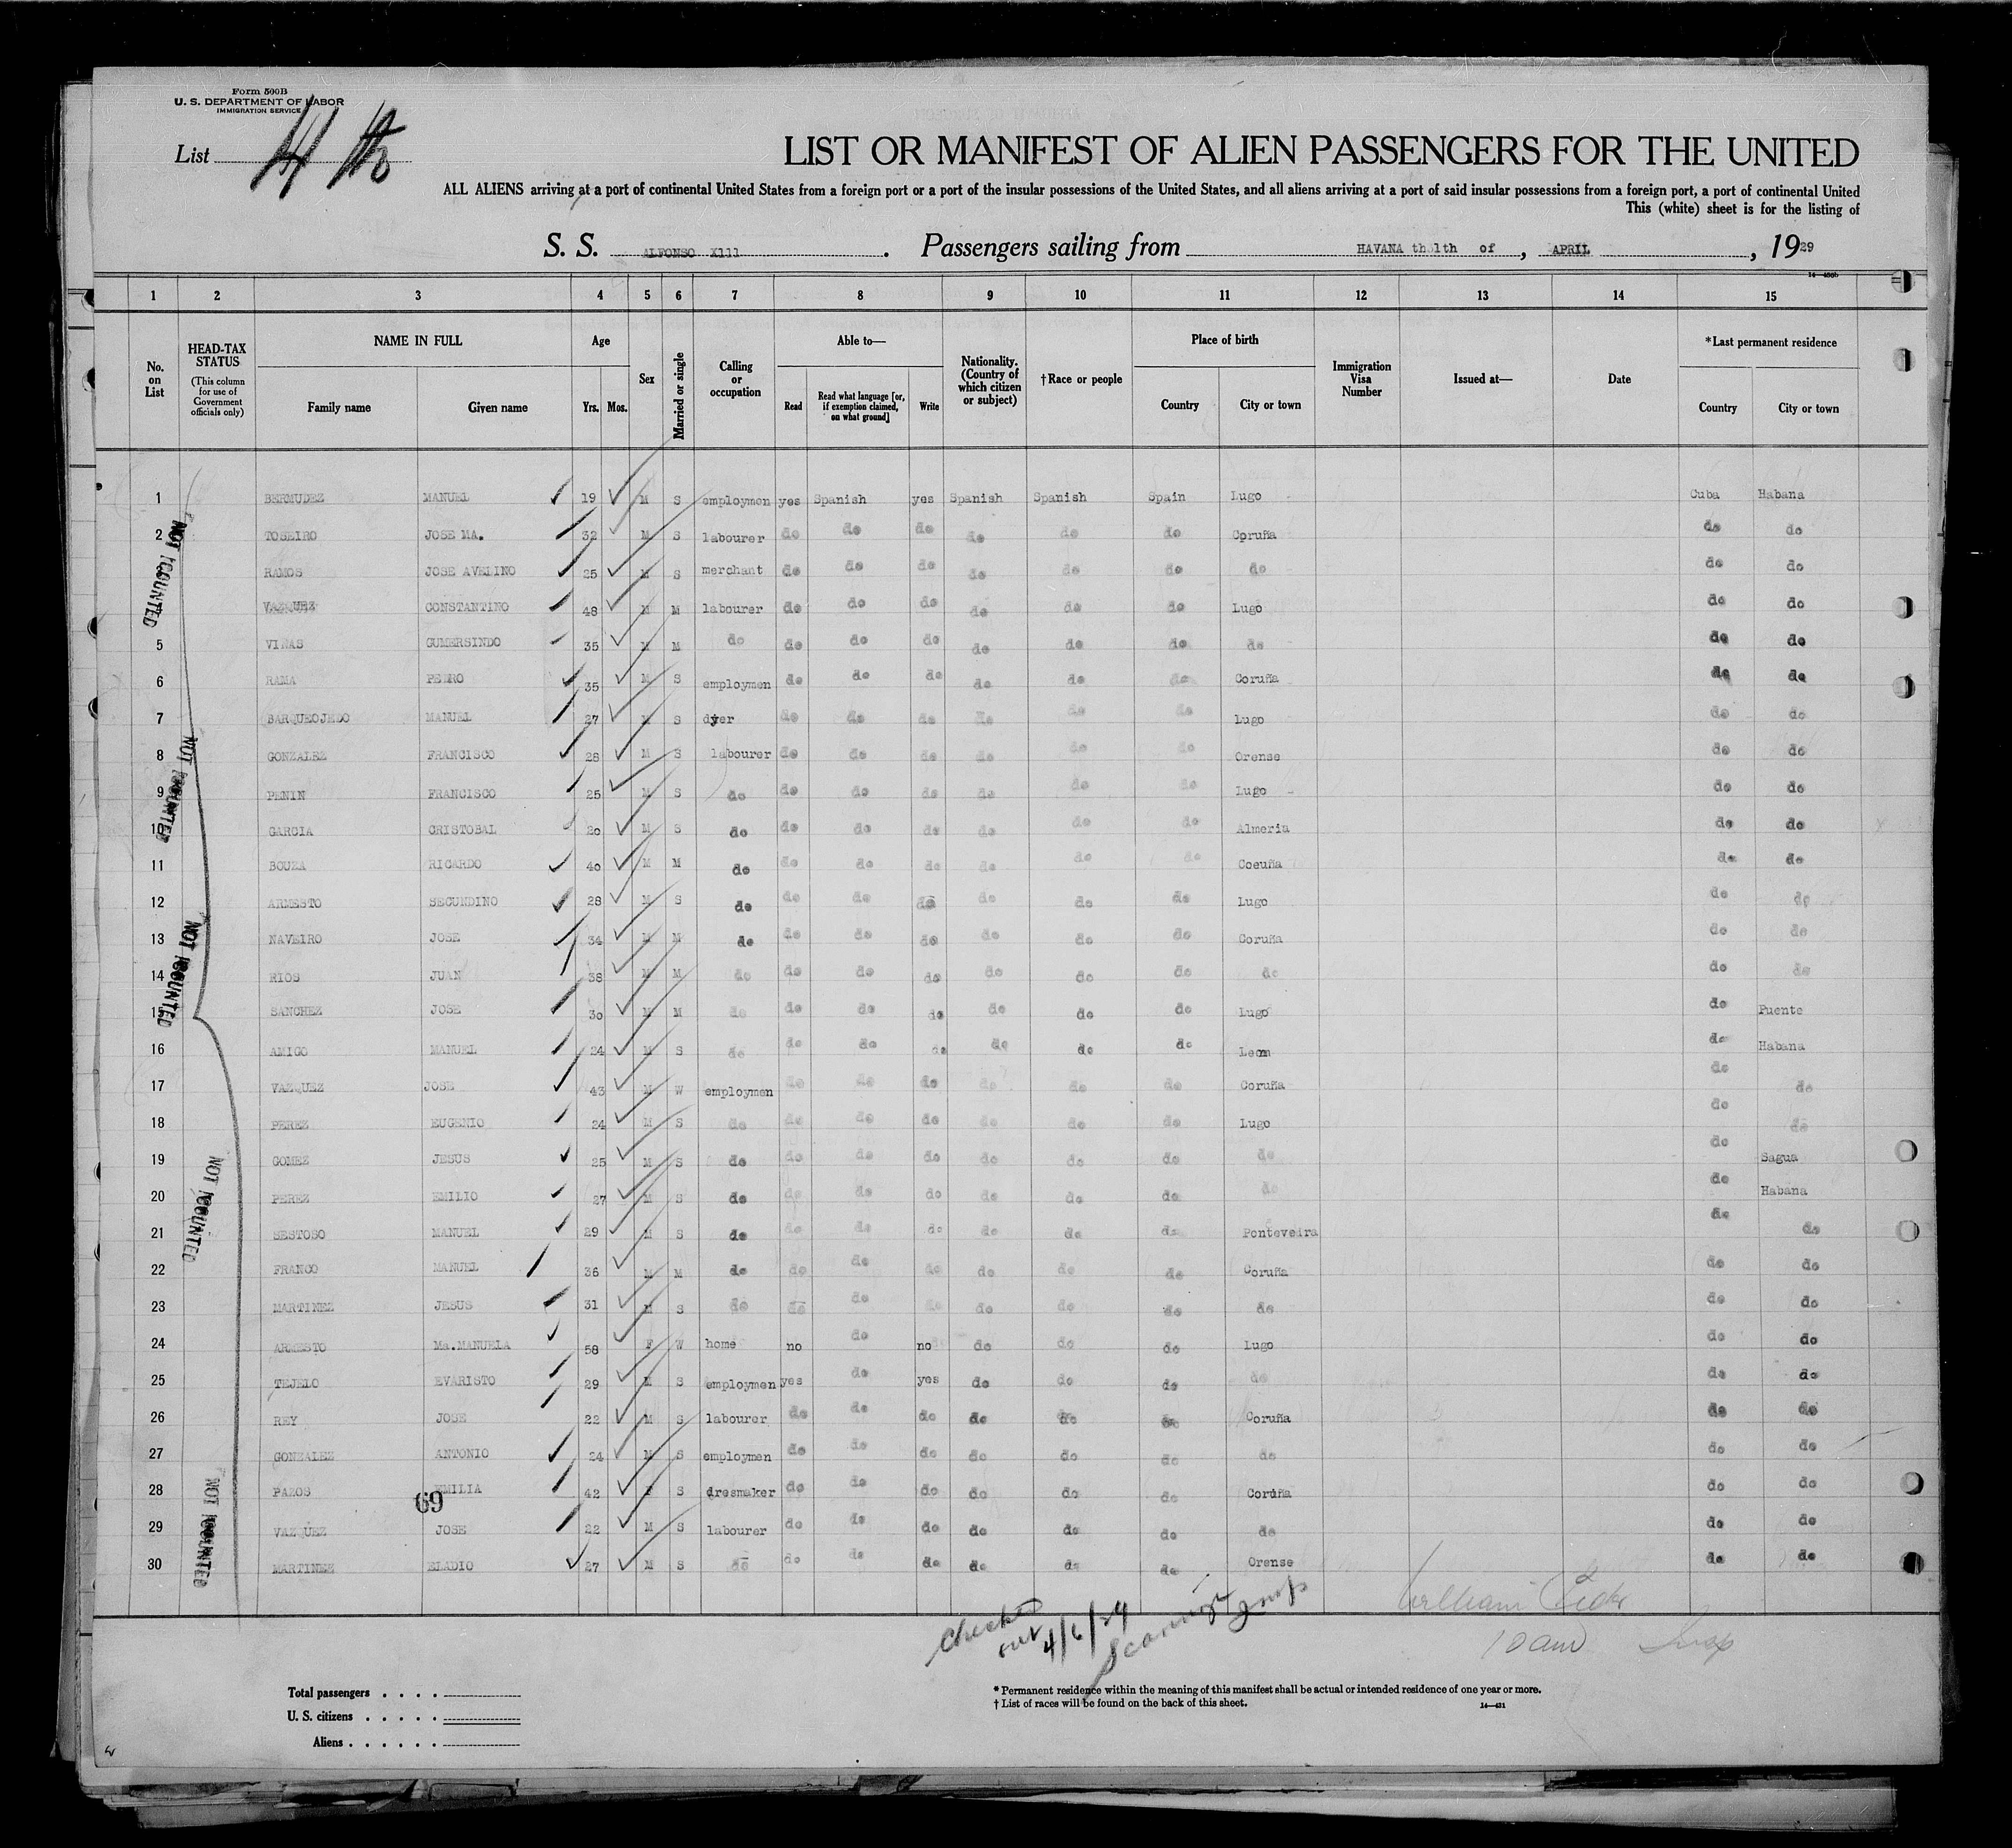 Form 500B
U. S. DEPARTMENT OF LABOR
IMMIGRATION SERVICE
List
LIST OR MANIFEST OF ALIEN PASSENGERS FOR THE UNITED
ALL ALIENS arriving at a port of continental United States from a foreign port or a port of the insular possessions of the United States, and all aliens arriving at a port of said insular possessions from a foreign port, a port of continental United
This (white) sheet is for the listing of
S. S. ALFONSO X111 . Passengers sailing from HAVANA th 1th of , APRIL , 1929
1 2 3 4 5 6 7 8 9 10 11 12 13 14 15
No. on List HEAD-TAX STATUS (This column for use of Government officials only) NAME IN FULL Family name Given name Age Yrs. Mos. Sex Married or single Calling or occupation Able to— Read Read what language [or, if exemption claimed, on what ground] Write Nationality. (Country of which citizen or subject) †Race or people Place of birth Country City or town Immigration Visa Number Issued at— Date *Last permanent residence Country City or town
1 BERMUDEZ MANUEL 19 M S employmen yes Spanish yes Spanish Spanish Spain Lugo Cuba Habana
2 TOSEIRO JOSE MA. 32 M S labourer do do do do do do Coruña do do
3 RAMOS JOSE AVELINO 25 M S merchant do do do do do do do do do
4 VAZQUEZ CONSTANTINO 48 M M labourer do do do do do do Lugo do do
5 VIÑAS GUMERSINDO 35 M M do do do do do do do do do do
6 RAMA PEDRO 35 M S employmen do do do do do do Coruña do do
7 BARQUEOJEDO MANUEL 27 M S dyer do do do do do do Lugo do do
8 GONZALEZ FRANCISCO 28 M S labourer do do do do do do Orense do do
9 PENIN FRANCISCO 25 M S do do do do do do do Lugo do do
10 GARCIA CRISTOBAL 20 M S do do do do do do do Almeria do do
11 BOUZA RICARDO 40 M M do do do do do do do Coeuña do do
12 ARMESTO SECUNDINO 28 M S do do do do do do do Lugo do do
13 NAVEIRO JOSE 34 M M do do do do do do do Coruña do do
14 RIOS JUAN 38 M M do do do do do do do do do do
15 SANCHEZ JOSE 30 M M do do do do do do do Lugo do Puente
16 AMIGO MANUEL 24 M S do do do do do do do Leon do Habana
17 VAZQUEZ JOSE 43 M W employmen do do do do do do Coruña do do
18 PEREZ EUGENIO 24 M S do do do do do do do Lugo do do
19 GOMEZ JESUS 25 M S do do do do do do do do do Sagua
20 PEREZ EMILIO 27 M S do do do do do do do do do Habana
21 SESTOSO MANUEL 29 M S do do do do do do do Ponteveira do do
22 FRANCO MANUEL 36 M M do do do do do do do Coruña do do
23 MARTINEZ JESUS 31 M S do do do do do do do do do do
24 ARMESTO Ma.MANUELA 58 F W home no do no do do do Lugo do do
25 TEJELO EVARISTO 29 M S employmen yes do yes do do do do do do
26 REY JOSE 22 M S labourer do do do do do do Coruña do do
27 GONZALEZ ANTONIO 24 M S employmen do do do do do do do do do
28 PAZOS EMILIA 42 F S dresmaker do do do do do do Coruña do do
29 VAZQUEZ JOSE 22 M S labourer do do do do do do do do do
30 MARTINEZ ELADIO 27 M S do do do do do do do Orense do do
NOT COUNTED
NOT COUNTED
NOT COUNTED
NOT COUNTED
NOT COUNTED
69
Checked out 4/6/29
William
10 am Insp
Total passengers . . . .
U. S. citizens . . . . .
Aliens . . . . . .
* Permanent residence within the meaning of this manifest shall be actual or intended residence of one year or more.
† List of races will be found on the back of this sheet.
14—431